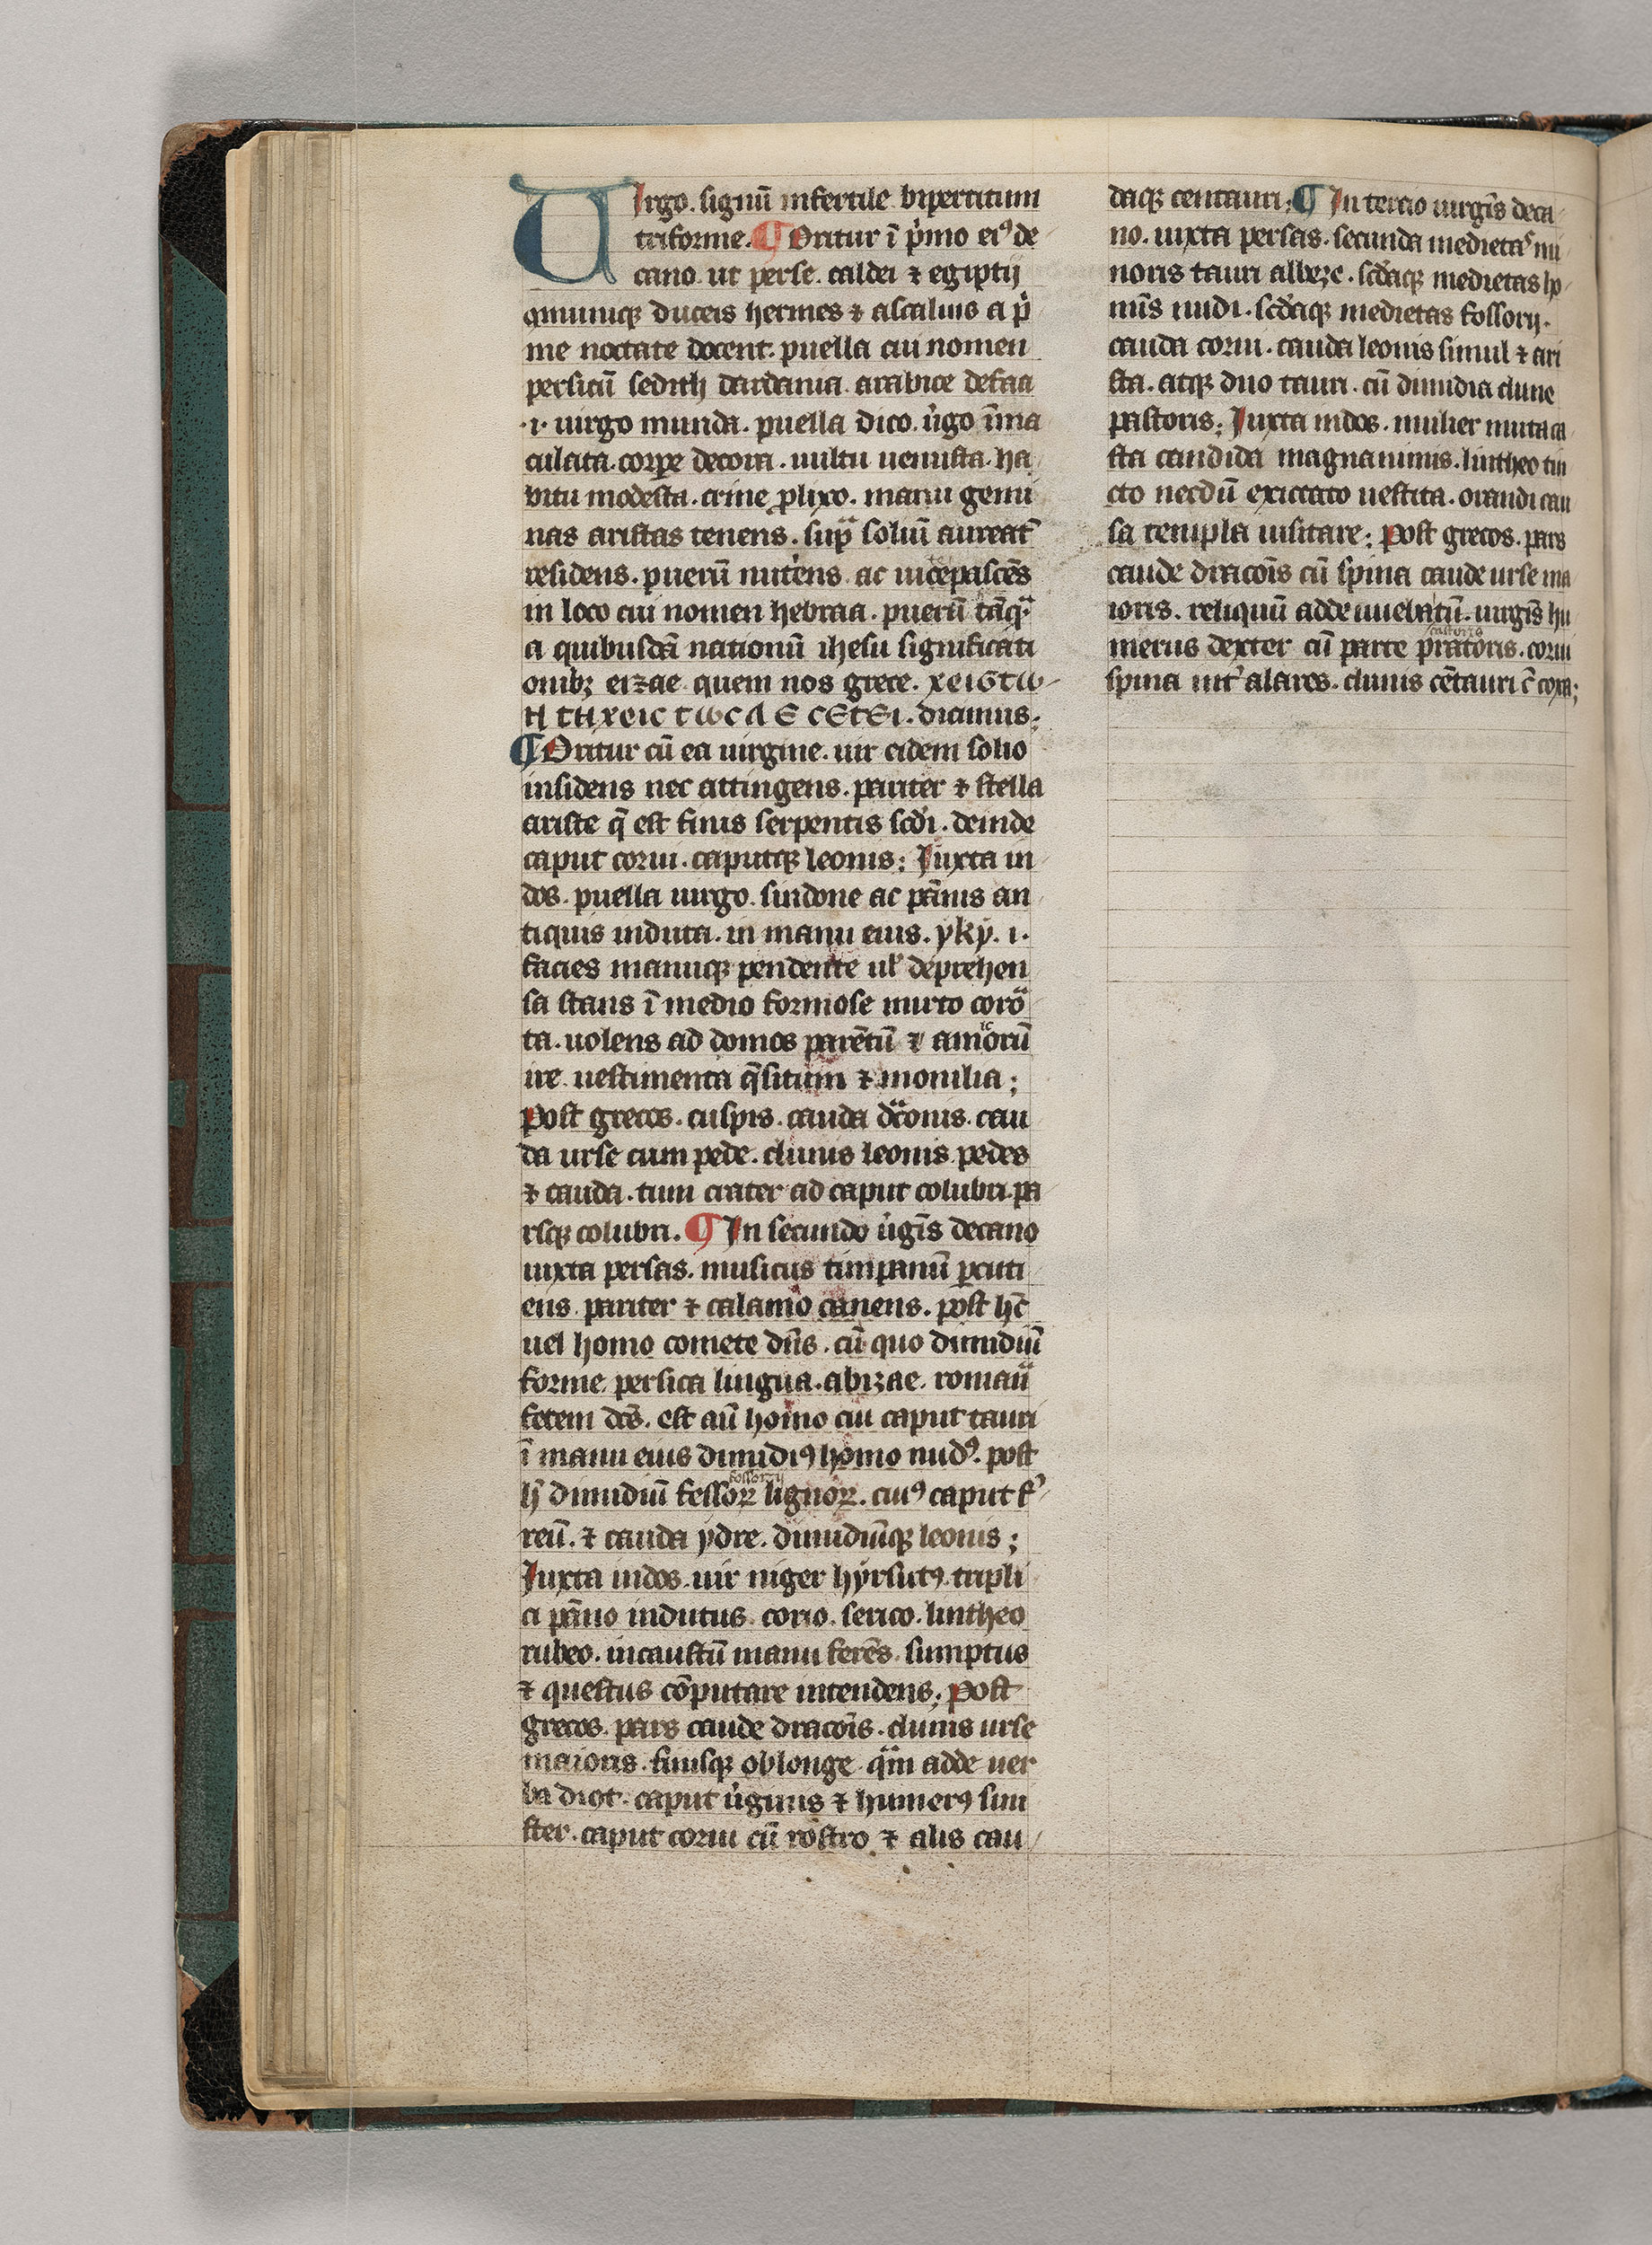 Uirgo. signū infertile bipertitum
triforme. ¶ Oritur ī p̍mo ei⁹ de
cano. ut perse. caldei ⁊ egiptij
om̅iumqꝫ duces hermes ⁊ ascalius a p̍
me noctate docent. puella cui nomen
persicū sedith dardama. arabice defaa
.i. uirgo munda. puella dico. u̍go īma
culata. corꝑe decora. uultu uenusta. ha
bitu modesta. crine ꝓlixo. manu gemi
nas aristas tenens. supᷓ soliū aureat᷒
residens. puerū nutͥens ac iure pascēs
in loco cui nomen hebraa. puerū tāqᷓ
a quibusdā nationū ihesu significati
onibꝫ eizae. quem nos grece. xeiGTω
H THXPIC TωC Λ E CETEI. dicimus.
¶ Oritur cū ea uirgine. uir eidem solio
insidens nec attingens. pariter ⁊ stella
ariste q̄ est finis serpentis scd̍i. deinde
caput corui. caputqꝫ leonis; Juxta in
dos. puella uirgo. sindone ac pānis an
tiquis induta. in manu eius. yky. i.
facies manuqꝫ pendente ul̍ deprehen
sa stans ī medio formose mirto corōᷓ
ta. uolens ad domos parētū ⁊ amicorū
ire. uestimenta q̄situm ⁊ monilia;
Post grecos. cuspis. cauda dᷓconis. cau
da urse cum pede. clunis leonis. pedes
⁊ cauda. tum crater ad caput colubri. pa
rsqꝫ colubri. ¶ In secundo u̍gīs decano
iuxta persas. musicus timpanū ꝑcuti
ens. pariter ⁊ calamo canens. post hc̄
uel homo comete dn̄s. cū quo dimidiū
forme. persica lingua. abizae. romauᷓ
ferem dc̄s. est aū homo cui caput tauri
ī manu eius dimidi⁹ homo nud⁹. post
h̄ dimidiū fessorꝝ fossorij lignorꝝ. cui⁹ caput f᷒
reū. ⁊ cauda ydre. dimidiūqꝫ leonis;
Juxta indos. uir niger hyrsut⁹. tripli
ci pāno indutus. corio. serico. lintheo
rubeo. incaustū manu ferēs. sumptus
⁊ questus cōputare intendens; Post
grecos. pars caude dracoīs. clunis urse
maioris. finisqꝫ oblonge. qᷓm adde uer
ba diot. caput u̍ginis ⁊ humer⁹ sini
ster. caput corui cū rostro ⁊ alis cau
daqꝫ centauri; ¶ In tercio uirgīs deca
no. iuxta persas. secunda medietas mi
noris tauri albeze. scd̍aqꝫ medietas ho
mīs nudi. scd̍aqꝫ medietas fossorij.
cauda corui. cauda leonis simul ⁊ ari
sta. atqꝫ duo tauri. cū dimidia clune
pastoris; Juxta indos. mulier muta ca
sta candida magnanimis. lintheo tin
cto necdū exiccato uestita. orandi cau
sa templa uisitare; Post grecos. pars
caude dracoīs cū spina caude urse ma
ioris. reliquū adde uuebatū. uirgīs hu
merus dexter cū parte pratoris. corui
spina int̍ alares. clunis cētauri c̄ coxa;